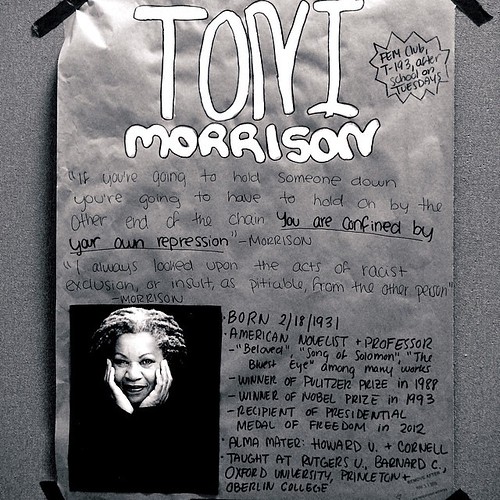 TONI
MORRISON
FEM CLUB,
T-193, after
school on
TUESDAYS
"If you're going to hold someone down
you're going to have to hold on by the
other end of the chain You are confined by
your own repression" -MORRISON
"I always looked upon the acts of racist
exclusion, or insult, as pitiable, from the other person"
-MORRISON
·BORN 2/18/1931
·AMERICAN NOVELIST + PROFESSOR
-"Beloved", "Song of Solomon", "The
Bluest Eye" among many works
-WINNER OF PULITZER PRIZE in 1988
-WINNER OF NOBEL PRIZE in 1993
-RECIPIENT OF PRESIDENTIAL
MEDAL OF FREEDOM in 2012
·ALMA MATER: HOWARD U. + CORNELL
·TAUGHT AT RUTGERS U., BARNARD C.,
OXFORD UNIVERSITY, PRINCETON +
OBERLIN COLLEGE